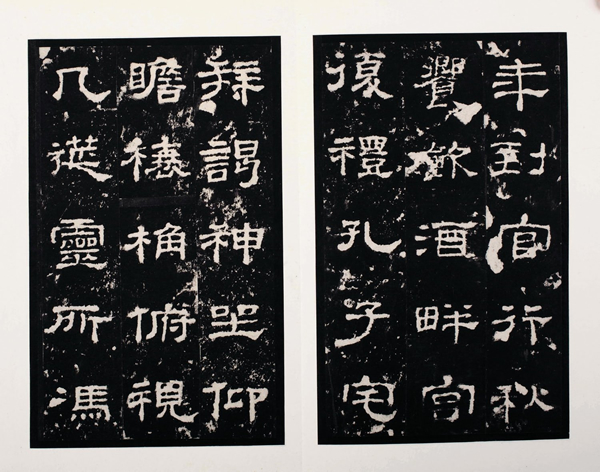 年到官行秋
饗飲酒畔宮
復禮孔子宅
拜謁神坐仰
瞻榱桷俯視
几筵靈所馮